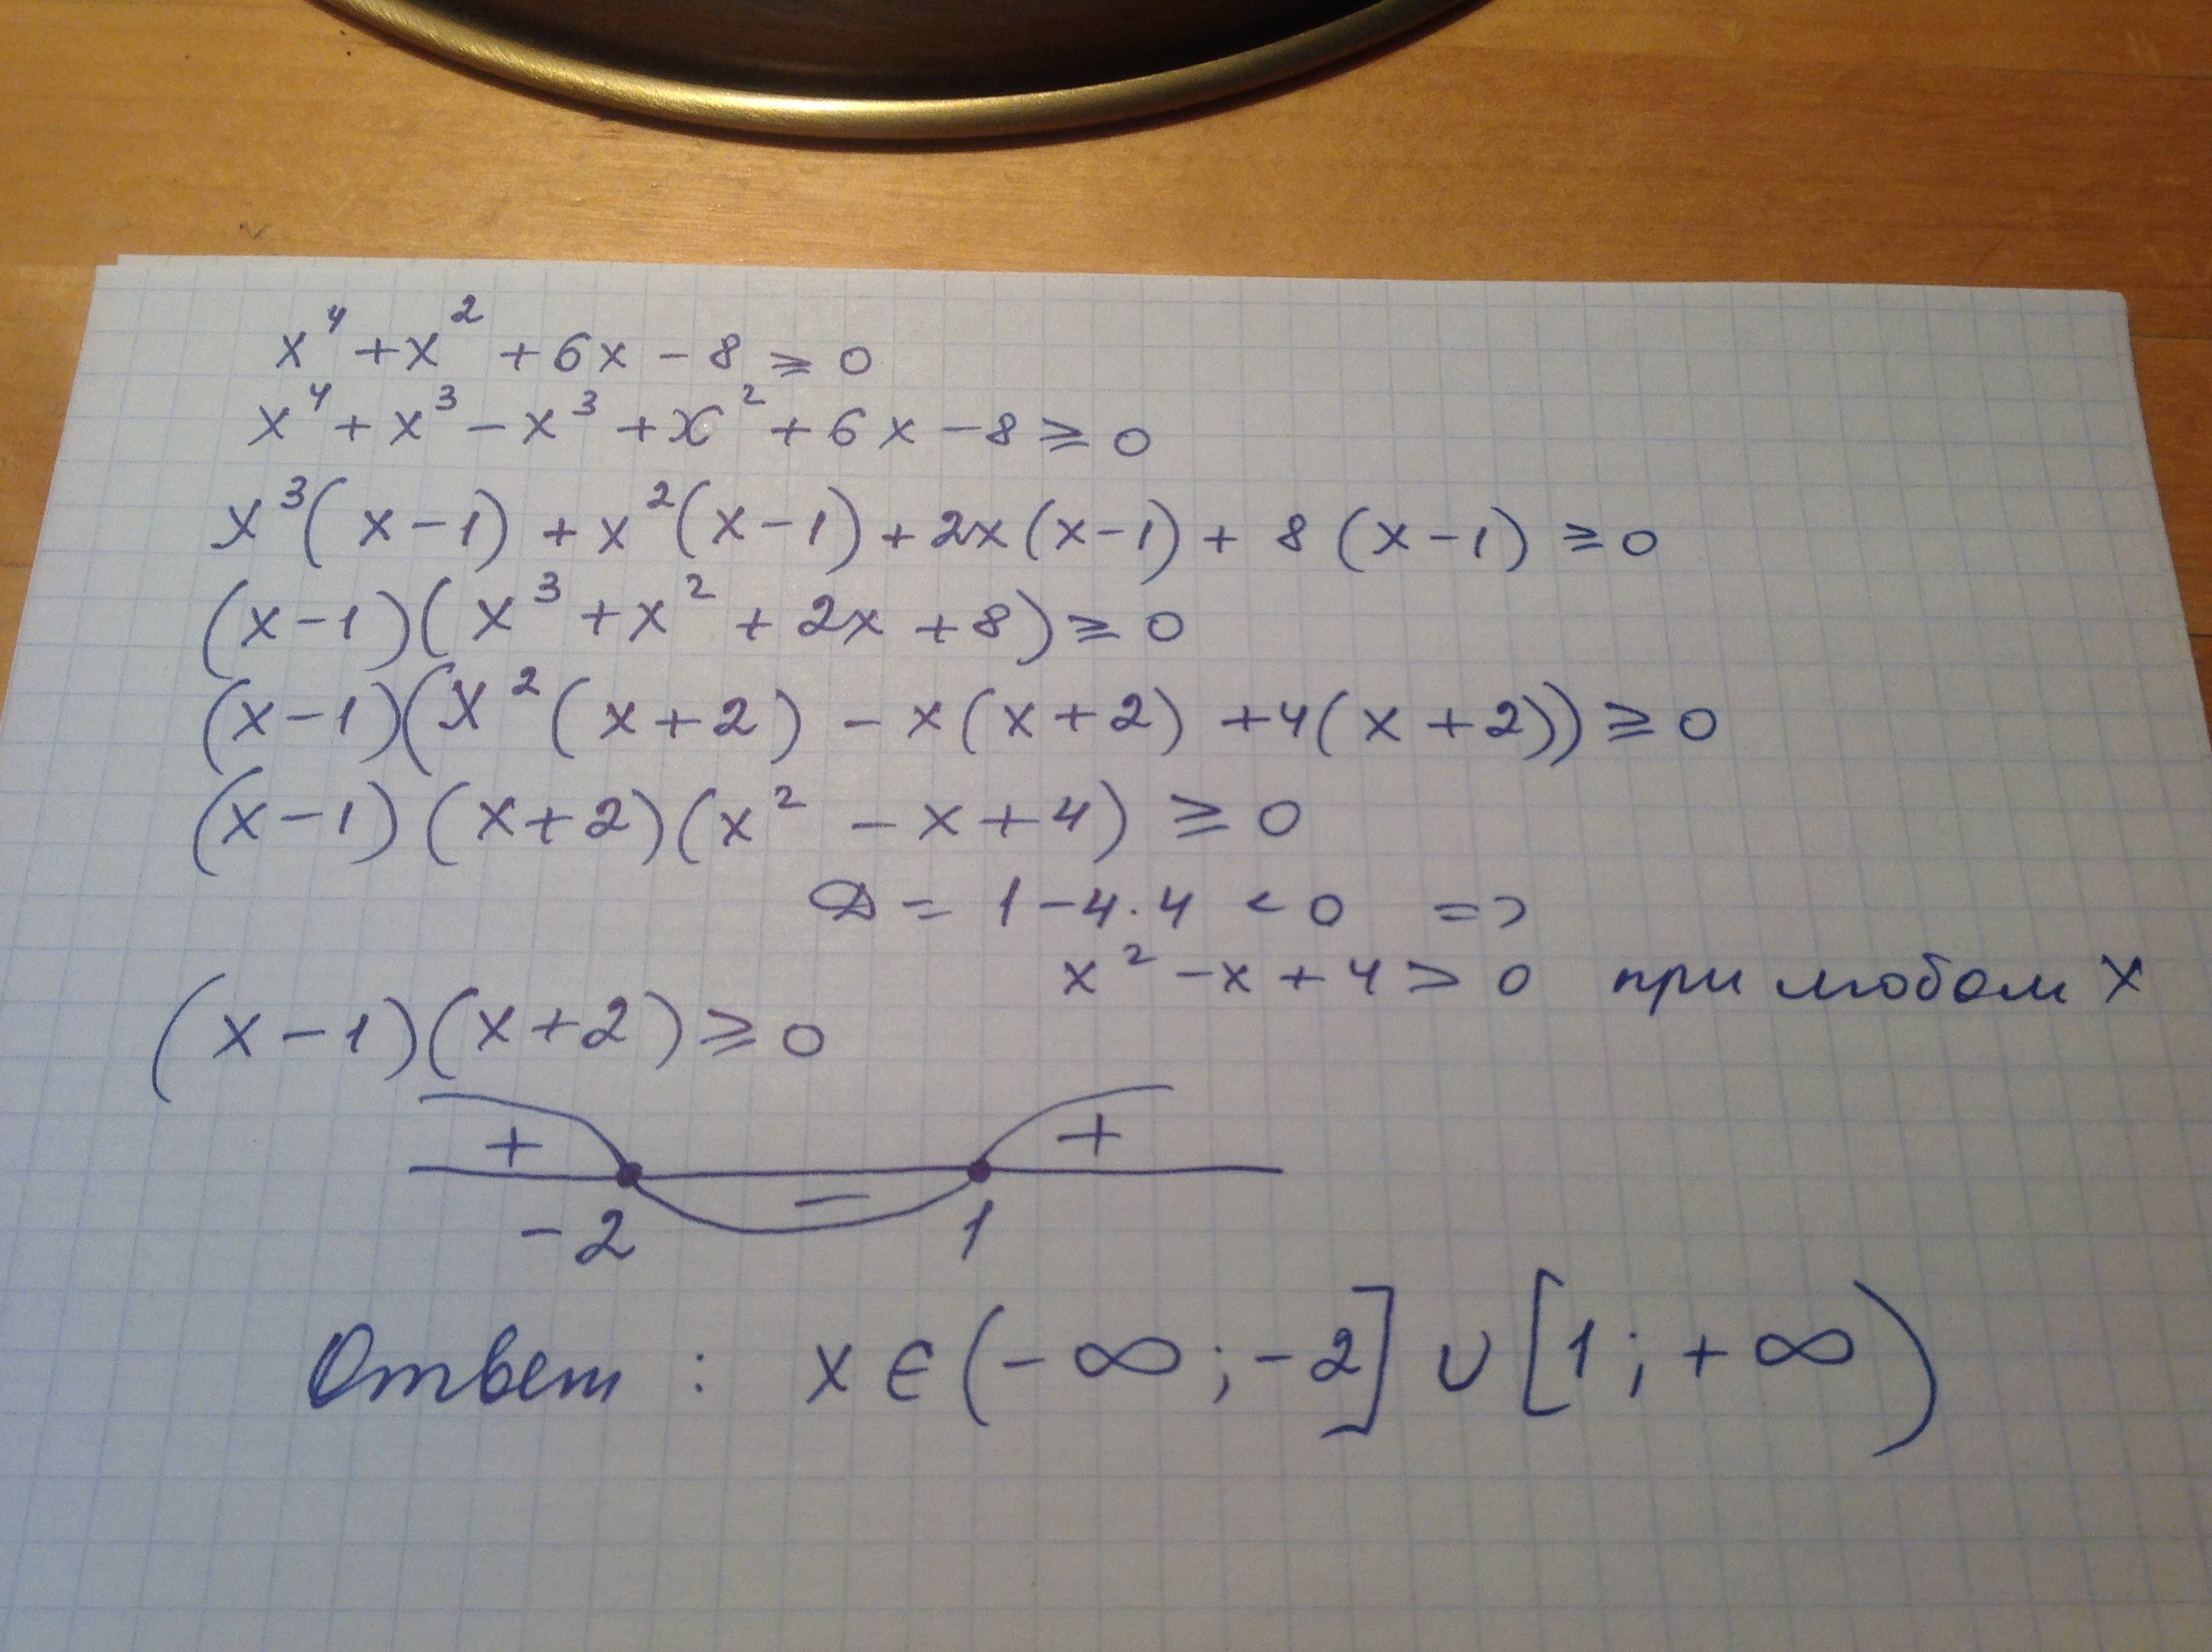 x⁴ + x² + 6x − 8 ≥ 0
x⁴ + x³ − x³ + x² + 6x − 8 ≥ 0
x³(x−1) + x²(x−1) + 2x(x−1) + 8(x−1) ≥ 0
(x−1)(x³ + x² + 2x + 8) ≥ 0
(x−1)(x²(x+2) − x(x+2) + 4(x+2)) ≥ 0
(x−1)(x+2)(x² − x + 4) ≥ 0
D = 1 − 4·4 < 0 =>
x² − x + 4 > 0 при любом x
(x−1)(x+2) ≥ 0
+ − +
−2 1
Ответ : x ∈ (−∞; −2] ∪ [1; +∞)